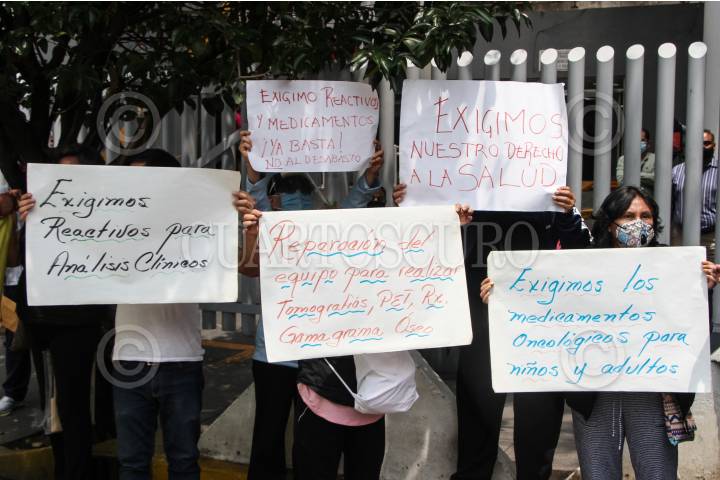 EXIGIMO REACTIVOS
Y MEDICAMENTOS
¡YA BASTA!
NO AL DESABASTO
EXIGIMOS
NUESTRO DERECHO
A LA SALUD
Exigimos
Reactivos para
Análisis Clínicos
Reparación del
equipo para realizar
Tomografías, PET, Rx,
Gamagrama Óseo
Exigimos los
medicamentos
Oncológicos para
niños y adultos
©CUARTOSCURO
©
©
©
©